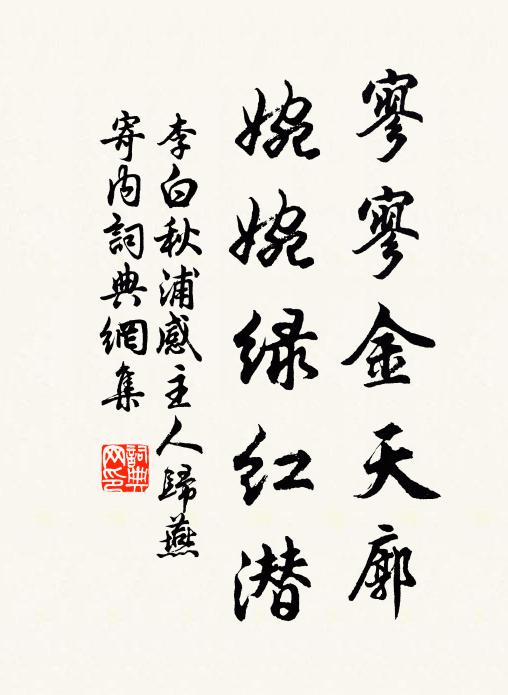 寥寥金天廓
婉婉绿红潜
李白秋浦感主人歸燕
寄内詞典網集
詞典网印